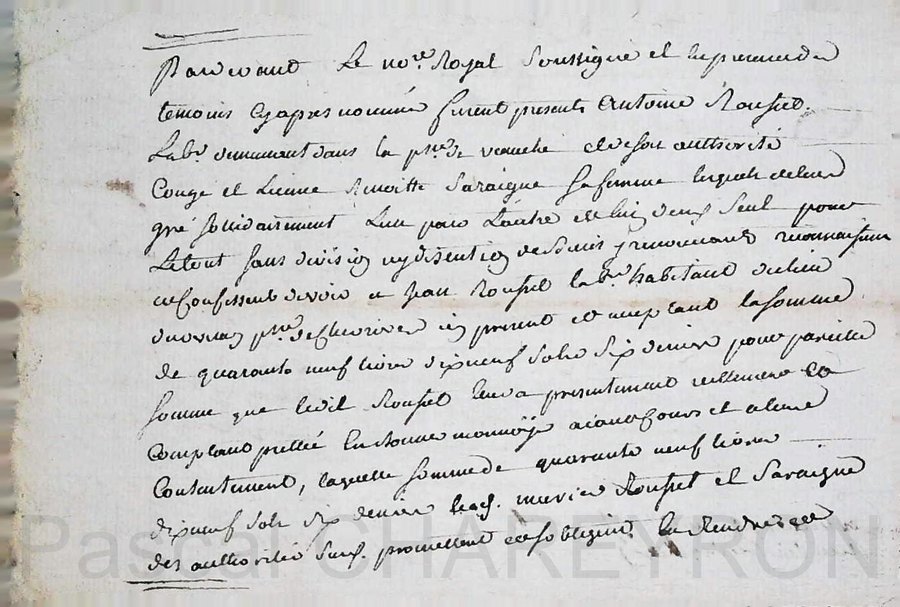 Pardevant Le no.re Royal soussigné et en presence des
temoins cy apres nommés furent presents Antoine Roussel
Lab.r demeurant dans la p.sse de et de son authorité
Congé et Licence Saraigne sa femme lesquels de leur
gré solidairement L'un pour L'autre et un d'eux seul pour
Le tout sans division ny discution renonceants reconnaissent
et Confessent devoir a Jean Roussel lab.r habitant du lieu
p.sse de present et acceptant la somme
de quarante neuf livres dix neuf sols six deniers pour pareille
somme que led.it Roussel leur a presentement reellement et
Comptant pretté En bonne monnoÿe aiant Cours et a leur
Contentement, laquelle somme de quarante neuf livres
dix neuf sols six deniers lesd. mariés Roussel et Saraigne
des authorités susd. promettent et s'obligent la rendre et
Pascal CHAREYRON